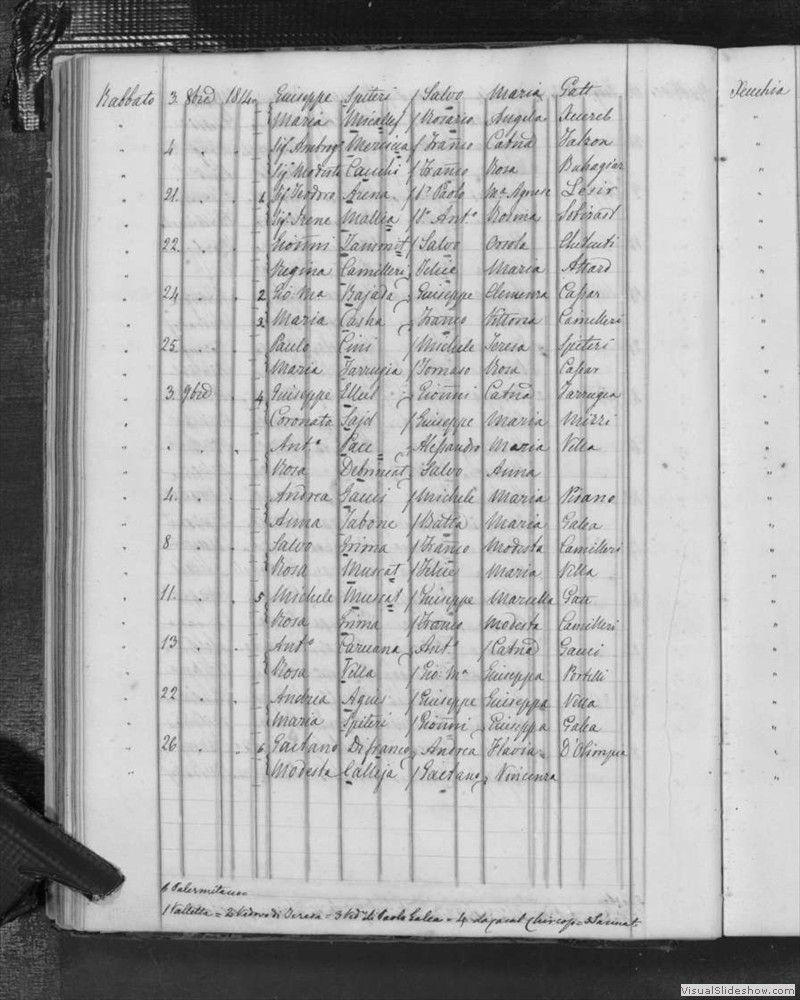 Rabbato 3. 8bre 1814. Giuseppe Spiteri / Salvo Maria Gatt
Maria Micallef / Rosario Angela Xuereb
4 Sig. Ambrog. / Franco Catna Falzon
Sig. Modesta Cauchi / Franco Rosa Buhagiar
21. 1. Sig. Teodoro Arena / Sr. Paolo Ma. Agnese
Sig. Irene Mallia / Sr. Anto. Rosina
22. Gionni Zammit / Salvo Orsola Chetcuti
Regina Camilleri / Felice Maria Attard
24 2 Gio: Ma Bajada Giuseppe Clemenza Capar
3. Maria Casha / Franco Vittoria Camilleri
25. Paulo Cini / Michele Teresa Spiteri
Maria Farrugia / Tomaso Rosa Capar
3. 9bre 4 Giuseppe Ellul Gionni Catna Farrugia
Coronata Sajd / Giuseppe Maria Mizzi
Anto. Pace Alessandro Maria Vella
Rosa Debrincat Salvo Anna
4. Andrea Gauci / Michele Maria Pisano
Anna Tabone / Batta Maria Galea
8 Salvo Grima / Franco Modesta Camilleri
Rosa Muscat / Felice Maria Vella
11. 5 Michele Muscat / Giuseppe Marcella Gatt
Rosa Grima / Franco Modesta Camilleri
13 Anto. Caruana Anto. / Catna Gauci
Rosa Vella / Gio: Ma Giuseppa Portelli
22 Andrea Agius / Giuseppe Giuseppa Vella
Maria Spiteri / Gionni Giuseppa Galea
26 6 Gaetano Difranco Andrea Flavia
Modesta Calleja / Gaetano Vincenza
6 Palermitano
1 Valletta = 2 Vedovo di Teresa = 3 Ved. di Paolo Galea = 4 da Casal Chircop = 5 Sannat
Xeuchia
VisualSlideshow.com